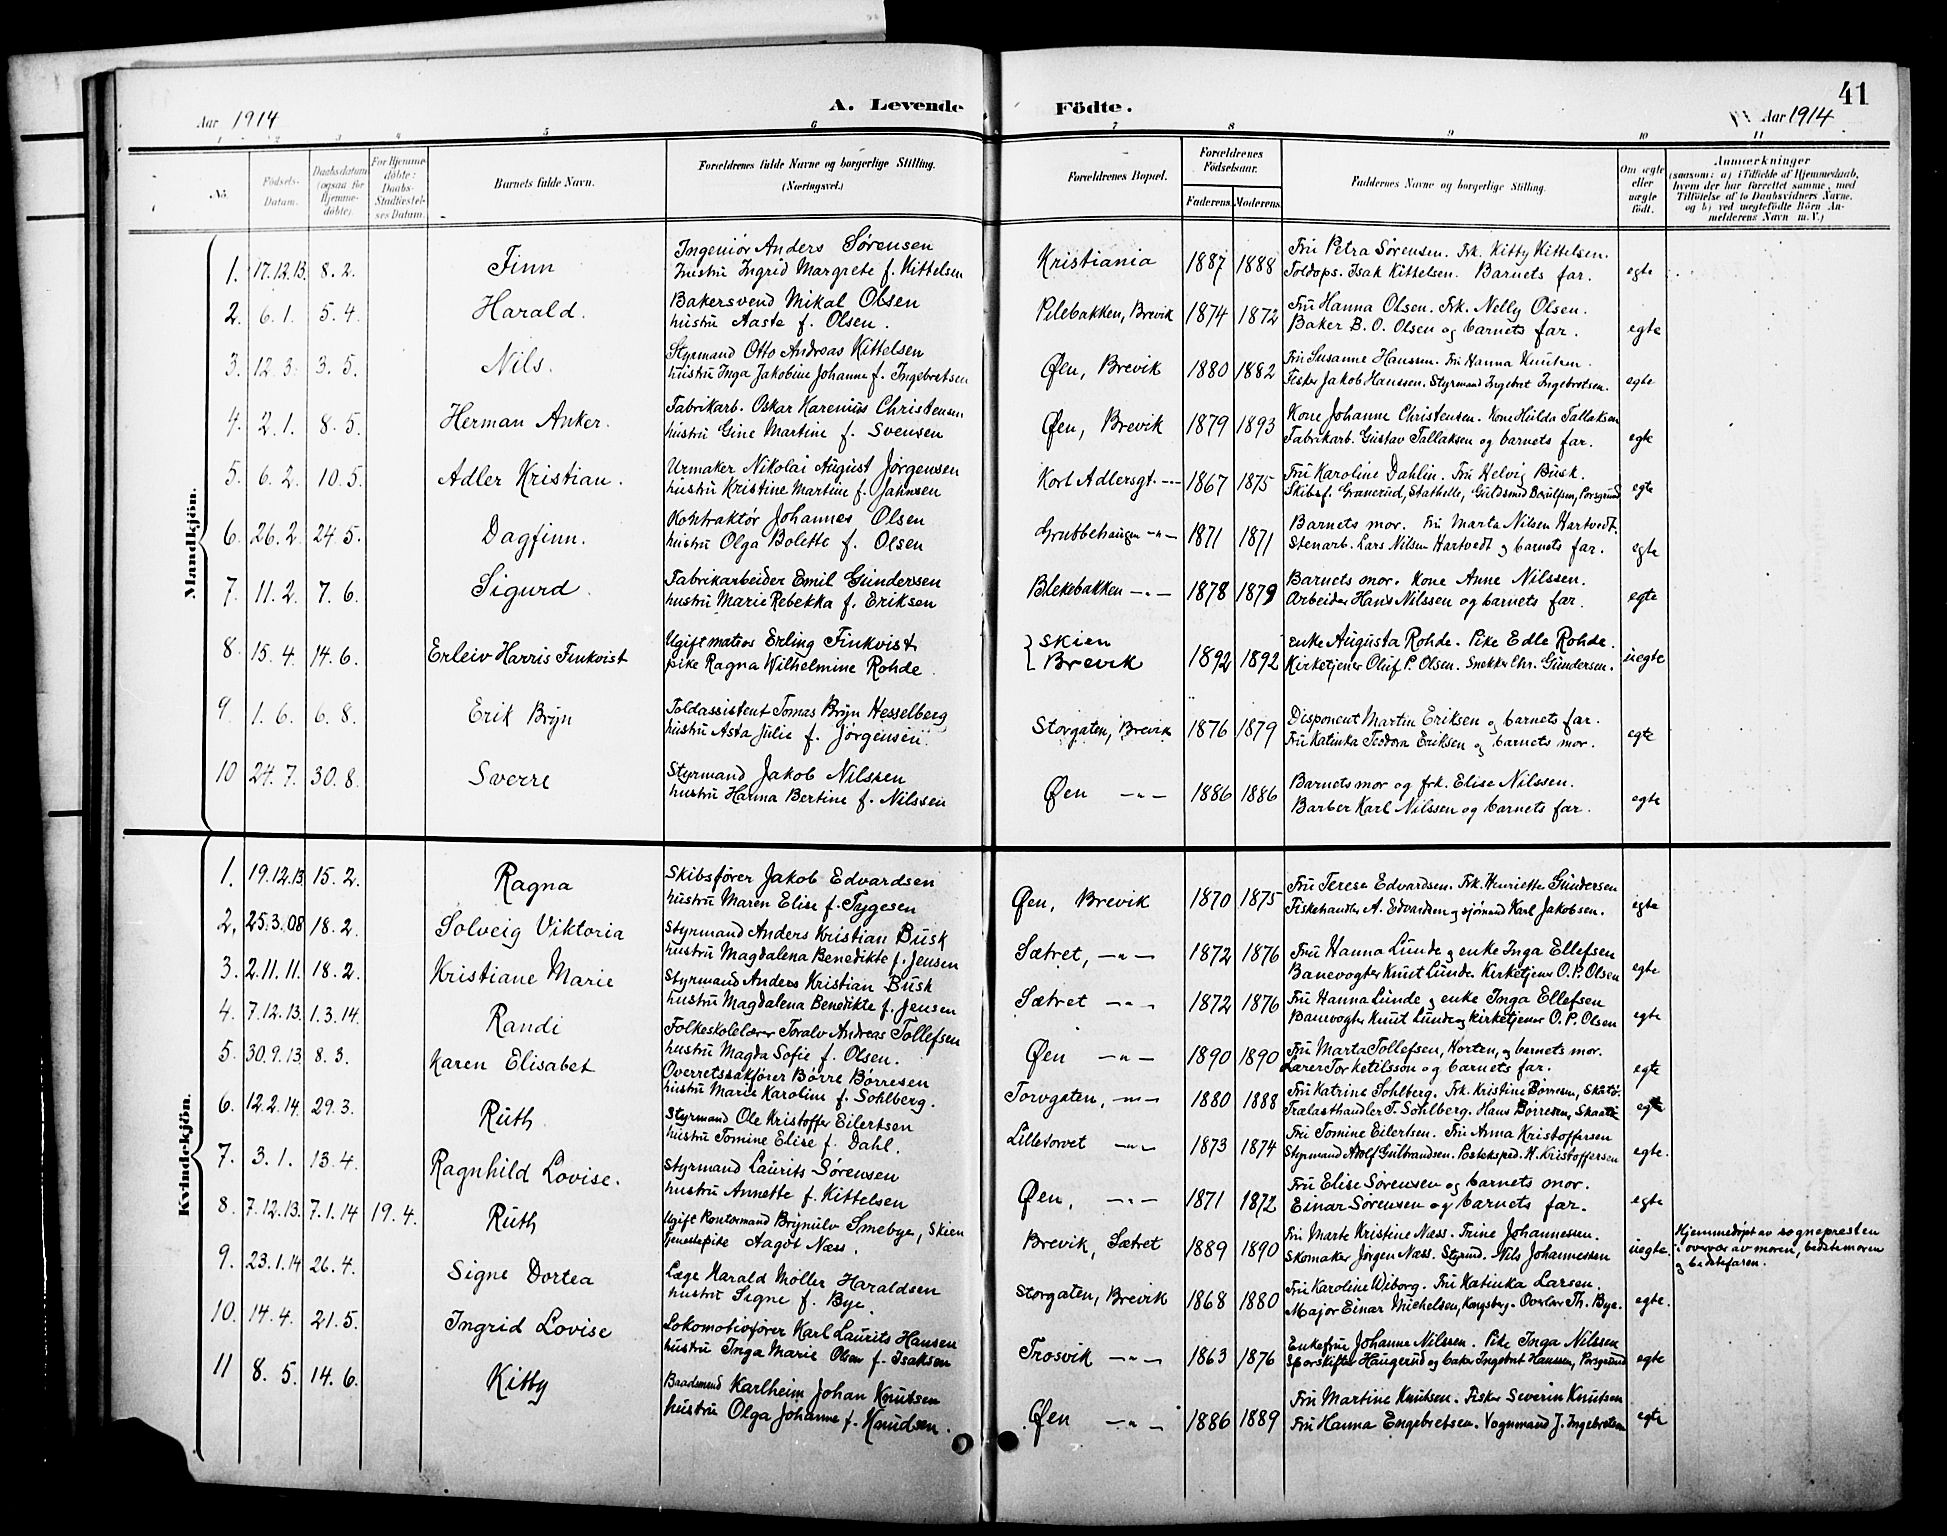 41
A. Levende Födte.
Aar 1914
Aar 1914
1 2 3 4 5 6 7 8 9 10 11
No.
Födsels-Datum.
Daabsdatum (ogsaa for Hjemme-döbte).
For Hjemme-döbte: Daabs-Stadfæstel-ses Datum.
Barnets fulde Navn.
Forældrenes fulde Navne og borgerlige Stilling. (Næringsvei.)
Forældrenes Bopæl.
Forældrenes Födselsaar.
Faderens. Moderens.
Faddernes Navne og borgerlige Stilling.
Om ægte eller uægte födt.
Anmærkninger
(saasom: a) i Tilfælde af Hjemmedaab, hvem der har forrettet samme, med Tilföielse af to Daabsvidners Navne, og b) ved uægtefödte Börn An-melderens Navn m. V.)
Mandkjön.
1. 17.12.13. 8.2. Finn
Ingeniør Anders Sørensen
hustru Ingrid Margrete f. Kittelsen
Kristiania 1887 1888
Fru Petra Sørensen. Frk. Kitty Kittelsen.
Toldops. Isak Kittelsen. Barnets far. egte
2. 6.1. 5.4. Harald.
Bakersvend Mikal Olsen
hustru Aaste f. Olsen.
Pilebakken, Brevik 1874 1872
Fru Hanna Olsen. Frk. Nelly Olsen.
Baker B. O. Olsen og barnets far. egte
3. 12.3. 3.5. Nils.
Styrmand Otto Andreas Kittelsen
hustru Inga Jakobine Johanne f. Ingebretsen
Øen, Brevik 1880 1882
Fru Susanne Hanssen. Fru Hanna Knutsen.
Fisker Jakob Hanssen. Styrmand Ingebret Ingebretsen. egte
4. 2.1. 8.5. Herman Anker.
Fabrikarb. Oskar Karenius Christensen
hustru Gine Martine f. Svensen
Øen, Brevik 1879 1893
Kone Johanne Christensen. Kone Hulda Tallaksen
Fabrikarb. Gustav Tallaksen og barnets far. egte
5. 6.2. 10.5. Adler Kristian.
Urmaker Nikolai August Jørgensen
hustru Kristine Martine f. Jahnsen
Kort Adlersgt. -"- 1867 1875
Fru Karoline Dahlin. Fru Helvig Busk.
Skibsf. Granerud, Stathelle, Guldsmed Bøulfsen, Porsgrund egte
6. 26.2. 24.5. Dagfinn.
Kontraktør Johannes Olsen
hustru Olga Bolette f. Olsen
Grubbehaugen -"- 1871 1871
Barnets mor. Fru Marta Nilsen Hartvedt.
Stenarb. Lars Nilsen Hartvedt og barnets far. egte
7. 11.2. 7.6. Sigurd.
Fabrikarbeider Emil Gundersen
hustru Marie Rebekka f. Eriksen
Blekebakken -"- 1878 1879
Barnets mor. Kone Anne Nilssen.
Arbeider Hans Nilssen og barnets far. egte
8. 15.4. 14.6. Erleiv Harris Finkvist
Ugift matros Erling Finkvist
pike Ragna Wilhelmine Rohde.
Skien
Brevik 1892 1892
Enke Augusta Rohde. Pike Edle Rohde.
Kirketjener Oluf P. Olsen. Snekker Chr. Gundersen. uegte
9. 1.6. 6.8. Erik Bryn
Toldassistent Tomas Bryn Hesselberg
hustru Asta Julie f. Jørgensen.
Storgaten, Brevik 1876 1879
Disponent Martin Eriksen og barnets far.
Fru Katinka Teodora Eriksen og barnets mor. egte
10 24.7. 30.8. Sverre
Styrmand Jakob Nilssen
hustru Hanna Bertine f. Nilssen
Øen -"- 1886 1886
Barnets mor og frk. Elise Nilssen.
Barber Karl Nilssen og barnets far. egte
Kvindekjön.
1. 19.12.13. 15.2. Ragna
Skibsfører Jakob Edvardsen
hustru Maren Elise f. Tygesen
Øen, Brevik 1870 1875
Fru Terese Edvardsen. Frk. Henriette Gundersen
Fiskehandler A. Edvardsen og sjømand Karl Jakobsen. egte
2. 25.3.08 18.2. Solveig Viktoria
Styrmand Anders Kristian Busk
hustru Magdalena Benedikte f. Jensen
Sætret, -"- 1872 1876
Fru Hanna Lunde og enke Inga Ellefsen
Banevogter Knut Lunde. Kirketjener O. P. Olsen egte
3. 2.11.11. 18.2. Kristiane Marie
Styrmand Anders Kristian Busk
hustru Magdalena Benedikte f. Jensen
Sætret -"- 1872 1876
Fru Hanna Lunde og enke Inga Ellefsen
Banevogter Knut Lunde og kirketjener O. P. Olsen egte
4. 7.12.13. 1.3.14. Randi
Folkeskolelærer Toralv Andreas Tollefsen
hustru Magda Sofie f. Olsen.
Øen -"- 1890 1890
Fru Marta Tollefsen, Horten, og barnets mor.
Lærer Tor Ketilsson og barnets far. egte
5. 30.9.13 8.3. Karen Elisabet
Overretssakfører Børre Børresen
hustru Marie Karoline f. Sohlberg.
Torvgaten, -"- 1880 1888
Fru Katrine Sohlberg. Frk. Kristine Børresen, Skaatø.
Trælasthandler T. Sohlberg. Hans Børresen, Skaatø egte
6. 12.2.14. 29.3. Ruth.
Styrmand Ole Kristoffer Eilertsen
hustru Tomine Elise f. Dahl.
Lilletorvet -"- 1873 1874
Fru Tomine Eilertsen. Fru Anna Kristoffersen
Styrmand Adolf Gulbrandsen. Posteksped. H. Kristoffersen egte.
7. 3.1. 13.4. Ragnhild Lovise.
Styrmand Laurits Sørensen
hustru Annette f. Kittelsen
Øen, -"- 1871 1872
Fru Elise Sørensen og barnets mor.
Einar Sørensen og barnets far. egte
8. 7.12.13. 7.1.14 19.4. Ruth
Ugift kontormand Brynulv Smebye, Skien
Tjenestepike Aagot Næss.
Brevik, Sætret 1889 1890
Fru Marte Kristine Næss. Trine Johannessen.
Skomaker Jørgen Næss. Styrmd. Nils Johannessen uegte.
Hjemmedøpt av sognepresten
i overvær av moren, bedstemoren
og bedstefaren.
9. 23.1.14 26.4. Signe Dortea
Læge Harald Møller Haraldsen
hustru Signe f. Bye.
Storgaten, Brevik 1868 1880
Fru Karoline Wiborg. Fru Katinka Larsen.
Major Einar Michelsen, Kongsberg. Overlær Th. Bye. egte.
10. 14.4. 21.5. Ingrid Lovise
Lokomotivfører Karl Laurits Hansen
hustru Inga Marie Olsen f. Isaksen
Trosvik -"- 1863 1876
Enkefru Johanne Nilssen. Pike Inga Nilssen
Sporskifter Haugerud og baker Ingebret Hanssen, Porsgrund egte
11 8.5. 14.6. Kitty
Baadsmand Karlheim Johan Knutsen
hustru Olga Johanne f. Knudsen.
Øen -"- 1886 1889
Fru Martine Knutsen. Fisker Severin Knutsen
Fru Hanna Engebretsen. Vognmand J. Ingebretsen egte